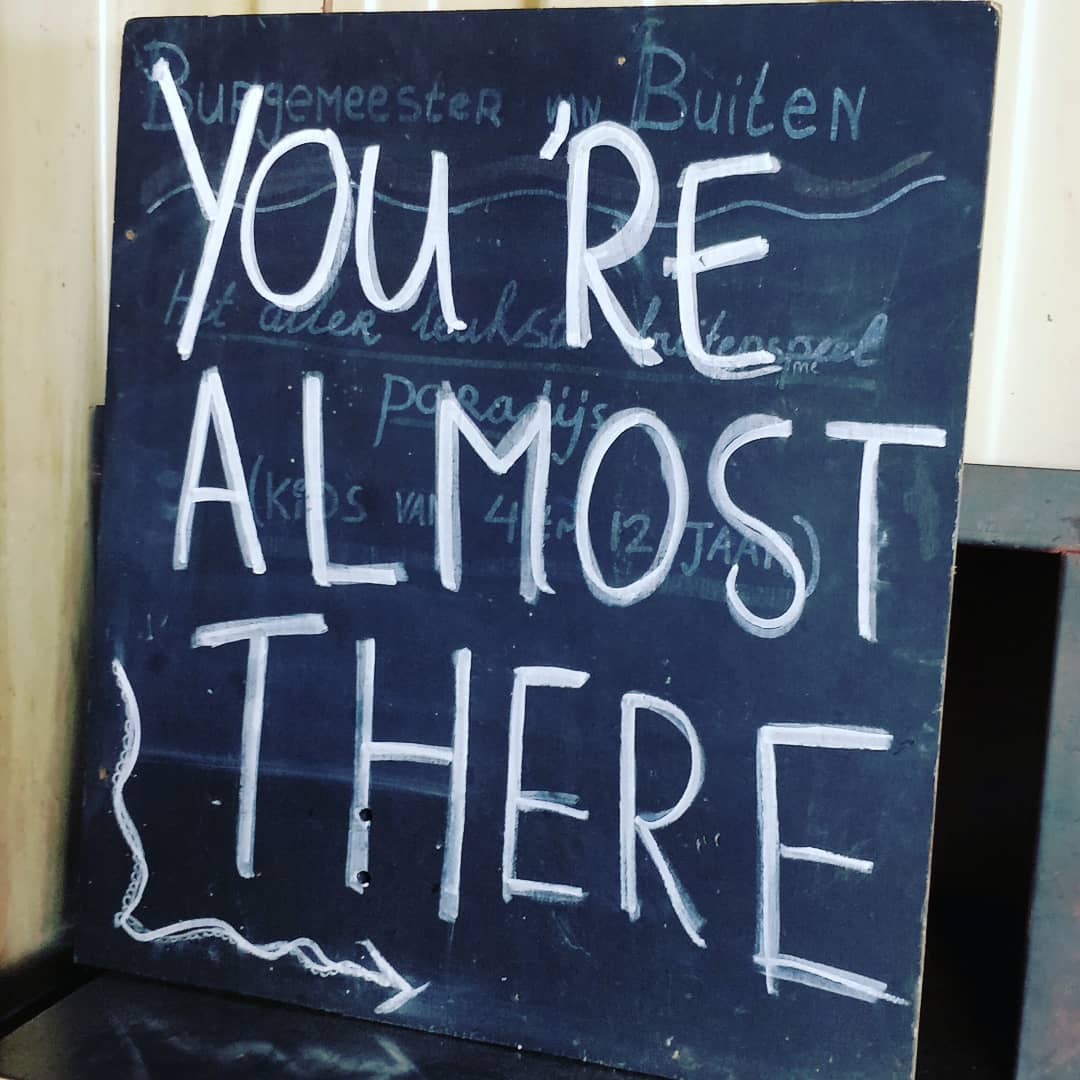 Burgemeester van Buiten
YOU'RE
Het aller leukste buitenspeel
paradijs
ALMOST
(KiDS VAN 4 t/m 12 JAAR)
THERE